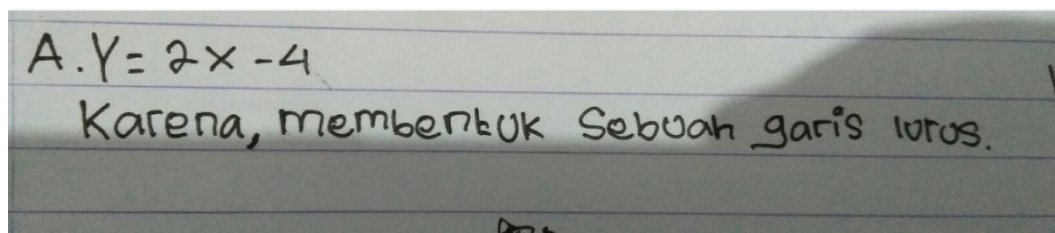 A. Y = 2x - 4
Karena, membentuk Sebuah garis lurus.